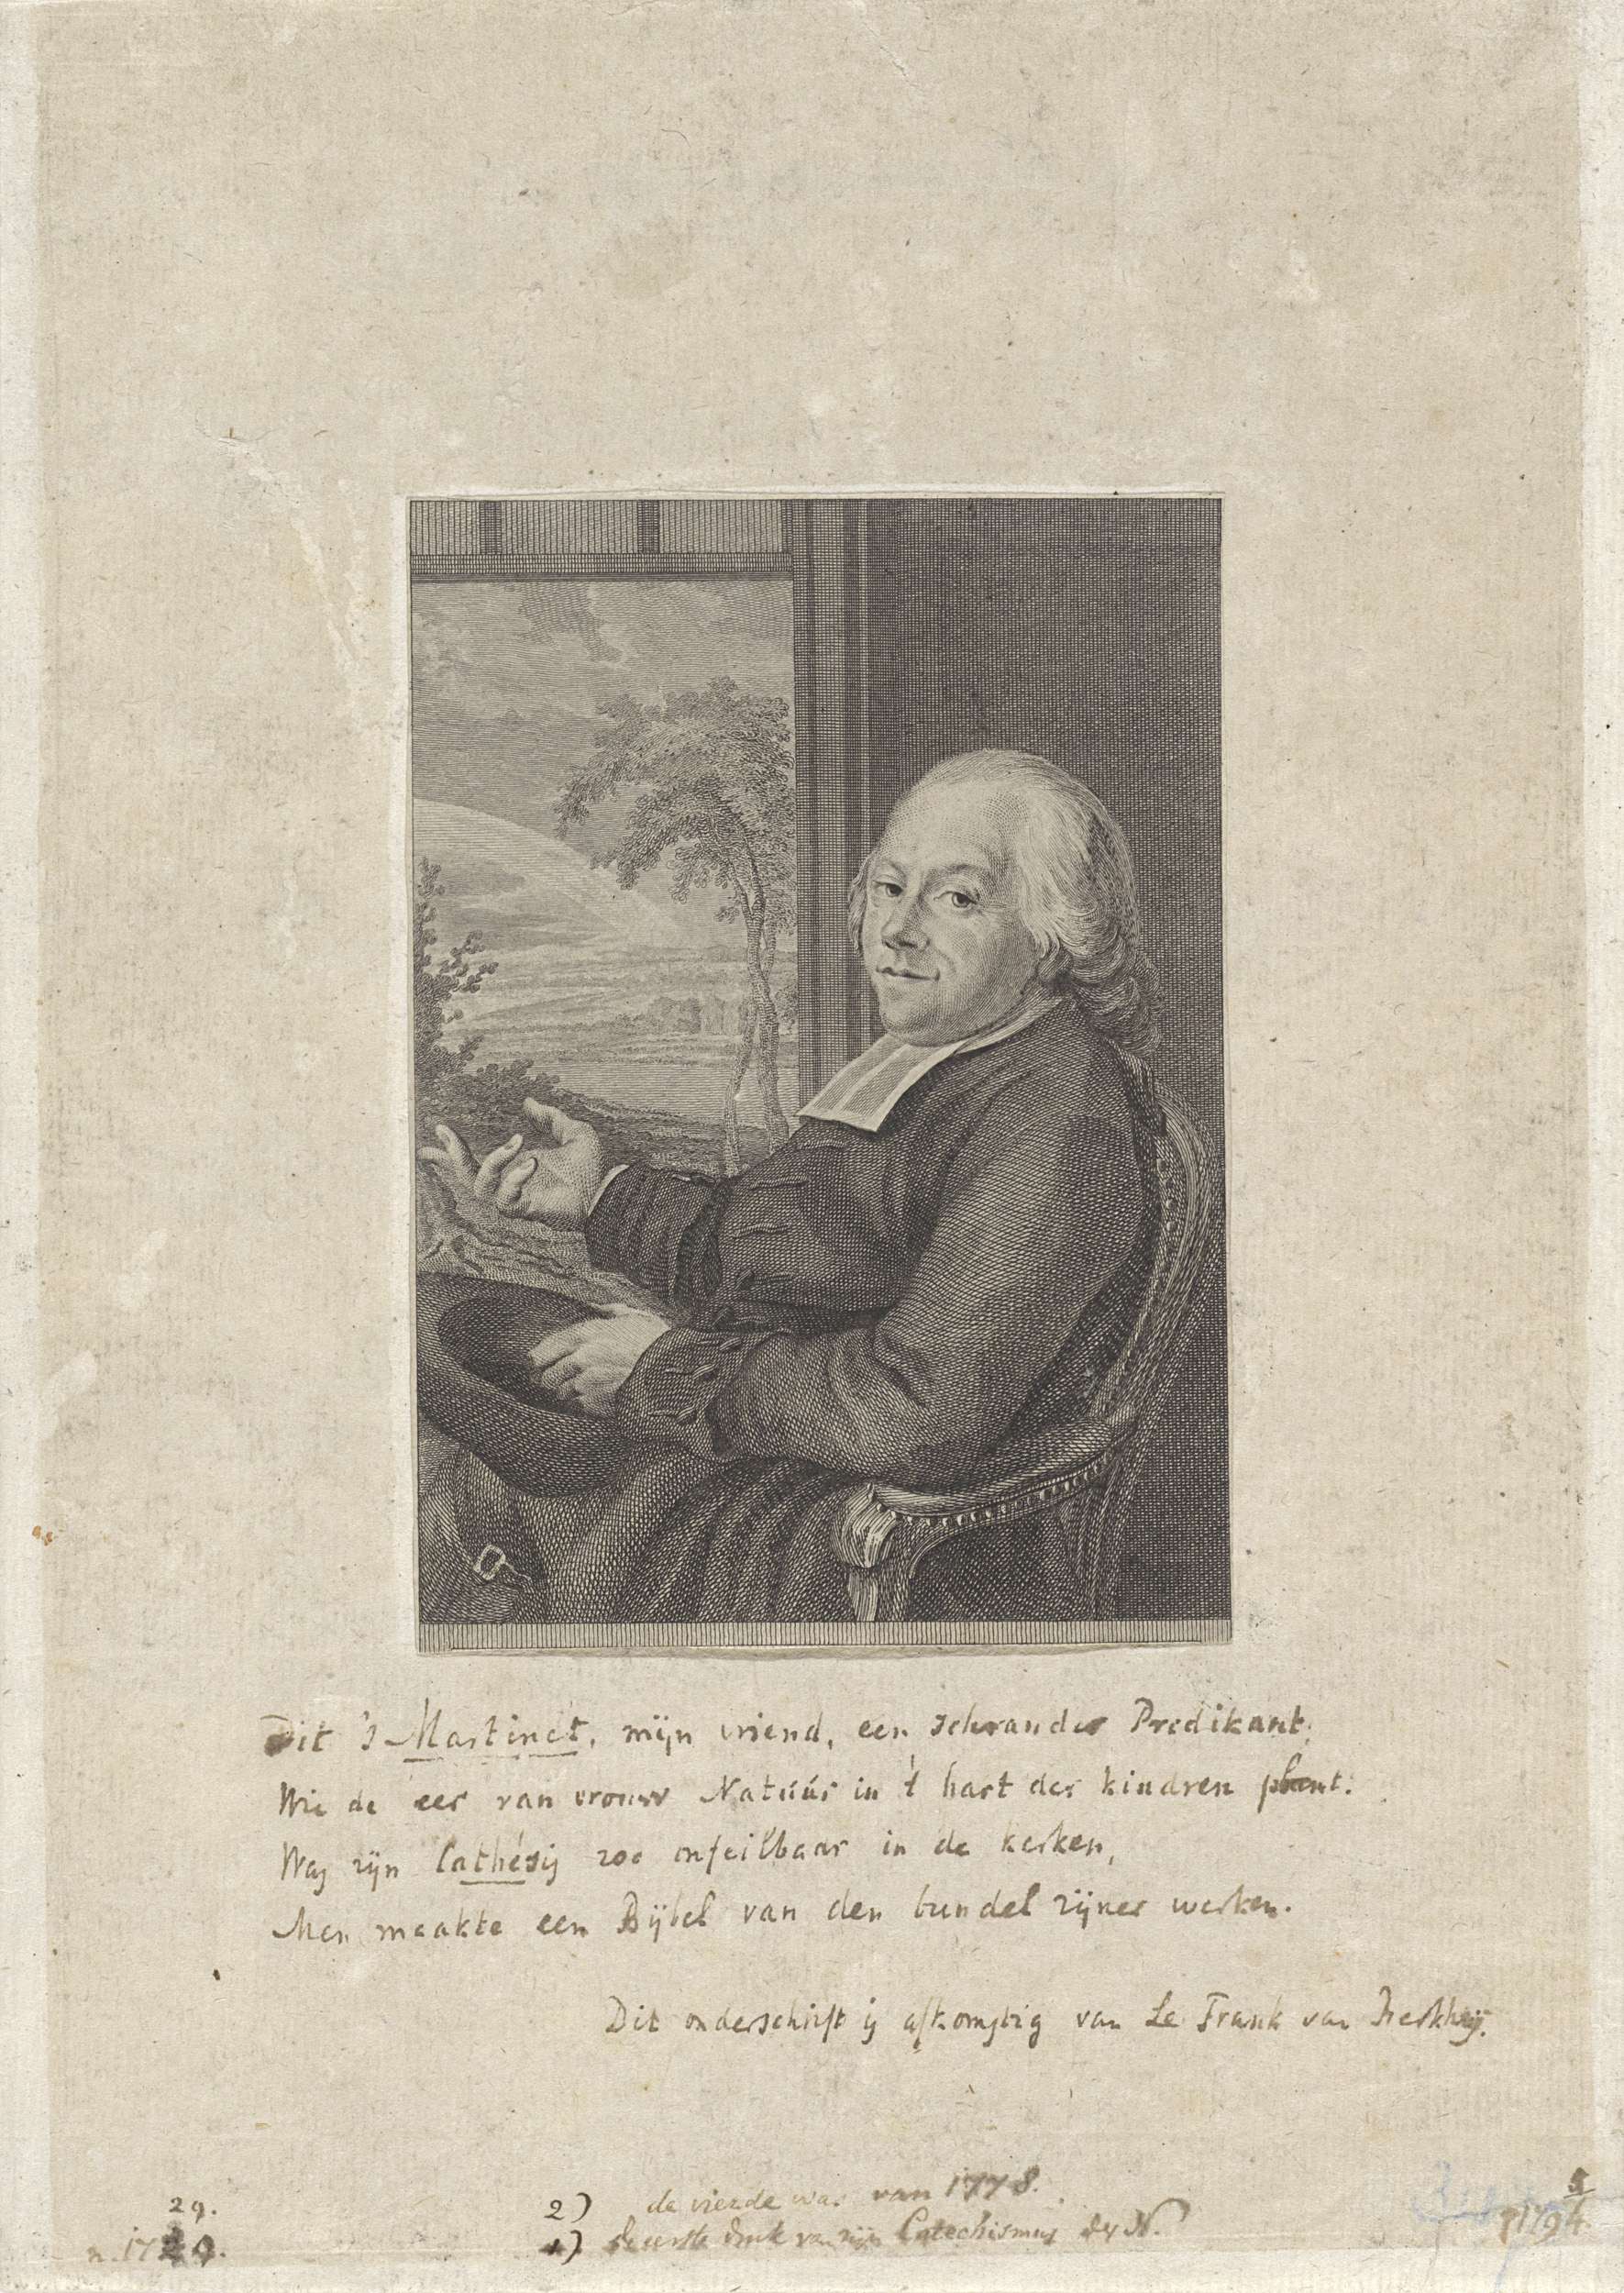 Dit 's Martinet, mijn vriend, een schrander Predikant;
Wie de eer van vrouw Natúúr in 't hart der kindren plant:
Was zijn Cathésis zoo onfeilbaar in de kerken,
Men maakte een Bijbel van den bundel zijner werken.
Dit onderschrift is afkomstig van Le Frank van Berkheij.
29.
2) de vierde was van 1778.
1) de eerste druk van zijn Catechismus der N.